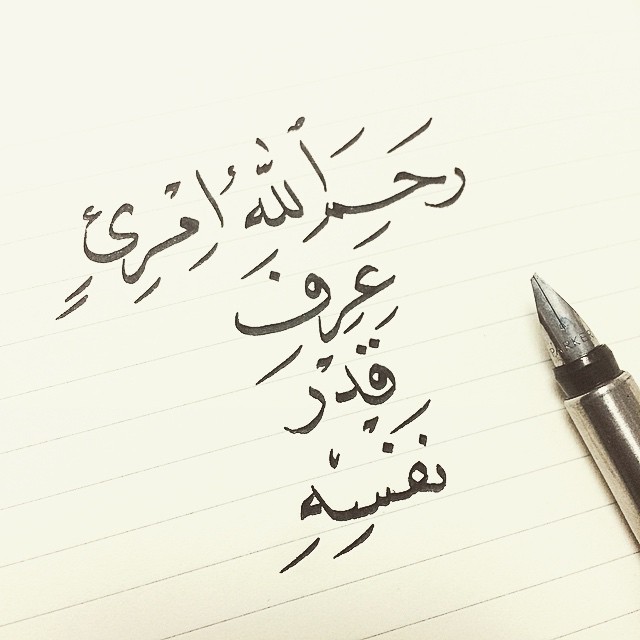 رَحِمَ أللّٰهُ اِمْرِئٍ
عَرِفَ
قَدْرَ
نَفْسِهِ
PARKER